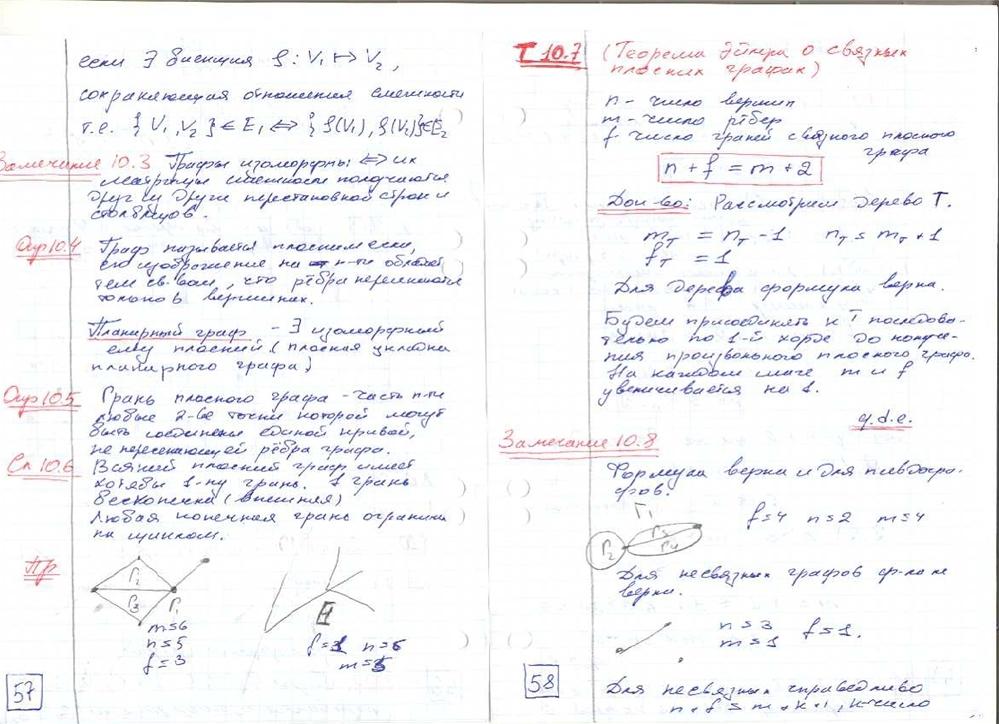 если ∃ биекция f: V₁ ↦ V₂,
сохраняющая отношения смежности
т.е. { V₁, V₂ } ∈ E₁ ⇔ { f(V₁), f(V₁)}∈E₂
Замечание 10.3 Графы изоморфны ⇔ их
матрицы смежности получаются
друг из друга перестановкой строк и
столбцов.
Опр 10.4 Граф называется плоским если,
его изображение на п-ти обладает
тем св-вом, что рёбра пересекаются
только в вершинах.
Планарный граф - ∃ изоморфный
ему плоский (плоская укладка
планарного графа)
Опр 10.5 Грань плоского графа - часть п-ти
любые 2-ве точки которой могут
быть соединены единой кривой,
не пересекающей рёбра графа.
Сл 10.6 Всякий плоский граф имеет
хотябы 1-ну грань. 1 грань
бесконечна (внешняя)
Любая конечная грань ограничена
циклом.
Пр
Г₂
Г₃ Г₁
m=6
n=5
f=3
f=1 n=6
m=5
57
Т 10.7 (Теорема Эйлера о связных
плоских графах)
n - число вершин
m - число рёбер
f число граней связного плоского
графа
n + f = m + 2
Док-во: Рассмотрим дерево T.
m_T = n_T - 1 n_T = m_T + 1
f_T = 1
Для дерева формула верна.
Будем присоединять к T последова-
тельно по 1-й хорде до получе-
ния произвольного плоского графа.
На каждом шаге m и f
увеличивается на 1.
q.d.e.
Замечание 10.8
Формула верна и для псевдогра-
фов.
Г₁
Г₂ Г₃ Г₄
f=4 n=2 m=4
Для несвязных графов ф-ла не
верна.
n=3
m=1 f=1.
58
Для несвязных справедливо
n + f = m + k + 1, k-число